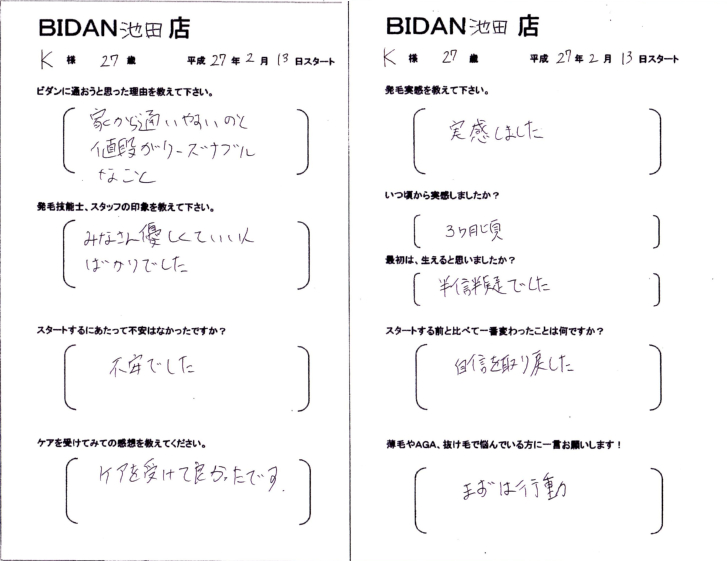 BIDAN池田 店
K 様 27 歳 平成 27 年 2 月 13 日スタート
ビダンに通おうと思った理由を教えて下さい。
家から通いやすいのと
値段がリーズナブル
なこと
発毛技能士、スタッフの印象を教えて下さい。
みなさん優しくていい人
ばかりでした
スタートするにあたって不安はなかったですか？
不安でした
ケアを受けてみての感想を教えてください。
ケアを受けて良かったです.
BIDAN池田 店
K 様 27 歳 平成 27 年 2 月 13 日スタート
発毛実感を教えて下さい。
実感しました
いつ頃から実感しましたか？
3ヶ月頃
最初は、生えると思いましたか？
半信半疑でした
スタートする前と比べて一番変わったことは何ですか？
自信を取り戻した
薄毛やAGA、抜け毛で悩んでいる方に一言お願いします！
まずは行動